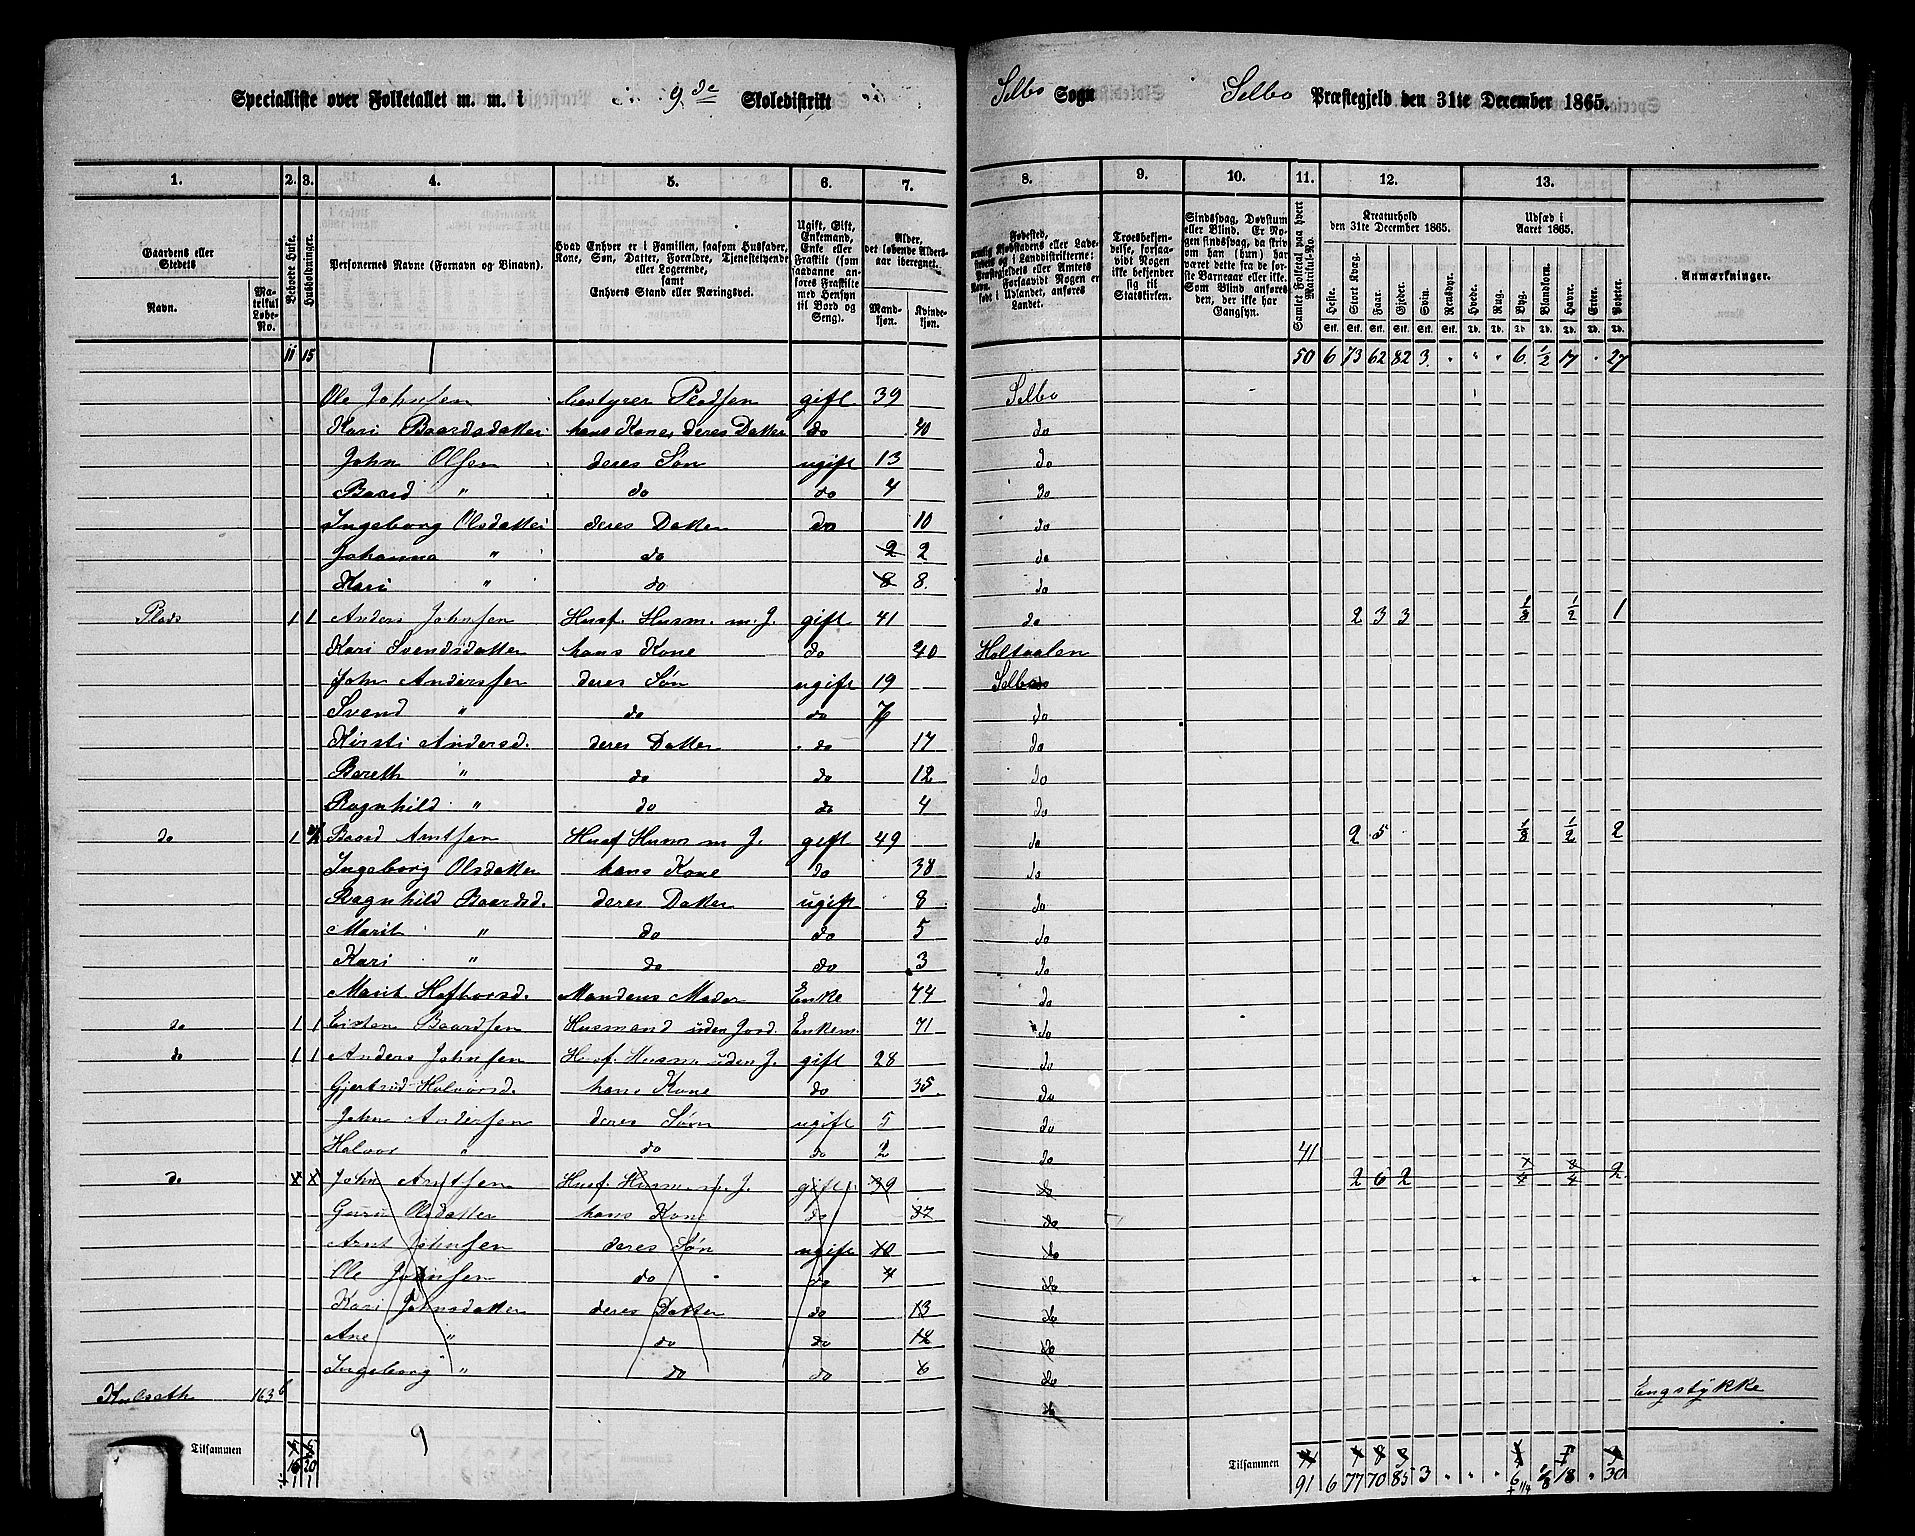 Specialliste over Folketallet m. m. i 9de Skoledistrikt
Selbo Sogn Selbo Præstegjeld den 31te December 1865.
1. 2. 3. 4. 5. 6. 7. 8. 9. 10. 11. 12. 13.
Gaardens eller Stedets
Navn.
Matrikul Løbe-No.
Beboede Huse.
Husholdninger.
Personernes Navne (Fornavn og Binavn).
Hvad Enhver er i Familien, saasom Husfader, Kone, Søn, Datter, Forældre, Tjenestetyende eller Logerende, samt Enhvers Stand eller Næringsvei.
Ugift, Gift, Enkemand, Enke eller Fraskilt (som saadanne anføres Fraskilte med Hensyn til Bord og Seng).
Alder, det løbende Aldersaar iberegnet.
Mandkjøn. Kvindekjøn.
Fødested, nemlig Kjøbstadens eller Ladestedets og i Landdistrikterne: Præstegjeldets eller Amtets Navn. Forsaavidt Nogen er født i Udlandet, anføres Landet.
Troesbekjendelse, forsaavidt Nogen ikke bekjender sig til Statskirken.
Sindssvag, Døvstum eller Blind. Er Nogen sindssvag, da skriv om han (hun) har været dette fra de første Barneaar eller ikke. Som Blind anføres den, der ikke har Gangsyn.
Samlet Folketal paa hvert Matrikul-No.
Kreaturhold den 31te December 1865.
Heste. Stort Kvæg. Faar. Gjeder. Svin. Rensdyr.
Udsæd i Aaret 1865.
Hvede. Rug. Byg. Blandkorn. Havre. Erter. Poteter.
Anmærkninger.
11 15 50 6 73 62 82 3 " " 6 1/2 17 " 27
Ole Johnsen gift 39 Selbo
Kari Baardsdatter hans Kone, deres Datter do 40 do
John Olsen deres Søn ugift 13 do
Baard " do do 4 do
Ingeborg Olsdatter deres Datter do 10 do
Johanna " do 2 2 do
Kari " do 8 8 do
Plads 1 1 Anders Johnsen Husf. Husm. m. J. gift 41 do 2 3 3 1/8 1/2 1
Kari Svendsdatter hans Kone do 40 Holtaalen
John Andersen deres Søn ugift 19 Selbo
Svend " do do 7 do
Kirsti Andersd. deres Datter do 17 do
Bereth " do do 12 do
Ragnhild " do do 4 do
do 1 Baard Arntsen Husf Husm m J. gift 49 do 2 5 1/8 1/2 2
Ingeborg Olsdatter hans Kone do 38 do
Ragnhild Baardsd. deres Datter ugift 8 do
Marit " do do 5 do
Kari " do do 3 do
Marit Hafborsd. Mandens Moder Enke 74 do
do 1 1 Baardsen Husmand uden Jord. Enkem. 71 do
do 1 1 Anders Johnsen Husf. Husm. uden J. gift 28 do
Gjertrud Halvorsd. hans Kone do 35 do
John Andersen deres Søn ugift 5 do
Halvor " do do 2 do 41
do x x John Arntsen Husf. Husm. m. J. gift 39 do 2 6 2 1/4 3/4 2
Guru Olsdatter hans Kone do 37 do
Arnt Johnsen deres Søn ugift 10 do
Ole Johnsen do do 4 do
Kari Johnsdatter deres Datter do 13 do
Ane " do do 12 do
Ingeborg " do do 6 do
163 b do Engstykke
9
Tilsammen 16 20
Tilsammen 91 6 77 70 85 3 " " " 6 1/8 18 " 30
+ 1 1 + 1/4